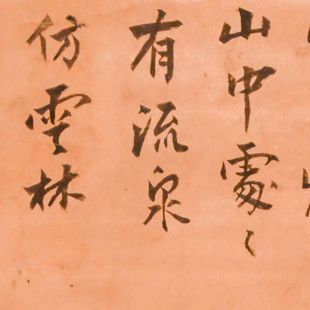 山中處〻
有流泉
仿雲林